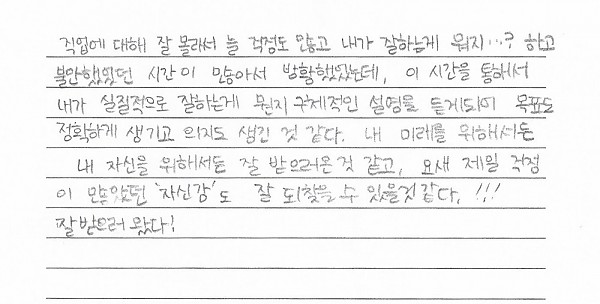 직업에 대해 잘 몰라서 늘 걱정도 많고 내가 잘하는게 뭐지...? 하고
불안했었던 시간이 많아서 방황했었는데, 이 시간을 통해서
내가 실질적으로 잘하는게 뭔지 구체적인 설명을 듣게되어 목표도
정확하게 생기고 의지도 생긴 것 같다. 내 미래를 위해서든
내 자신을 위해서든 잘 받으러온것 같고, 요새 제일 걱정
이 많았던 '자신감'도 잘 되찾을 수 있을것 같다. !!!
잘 받으러 왔다!